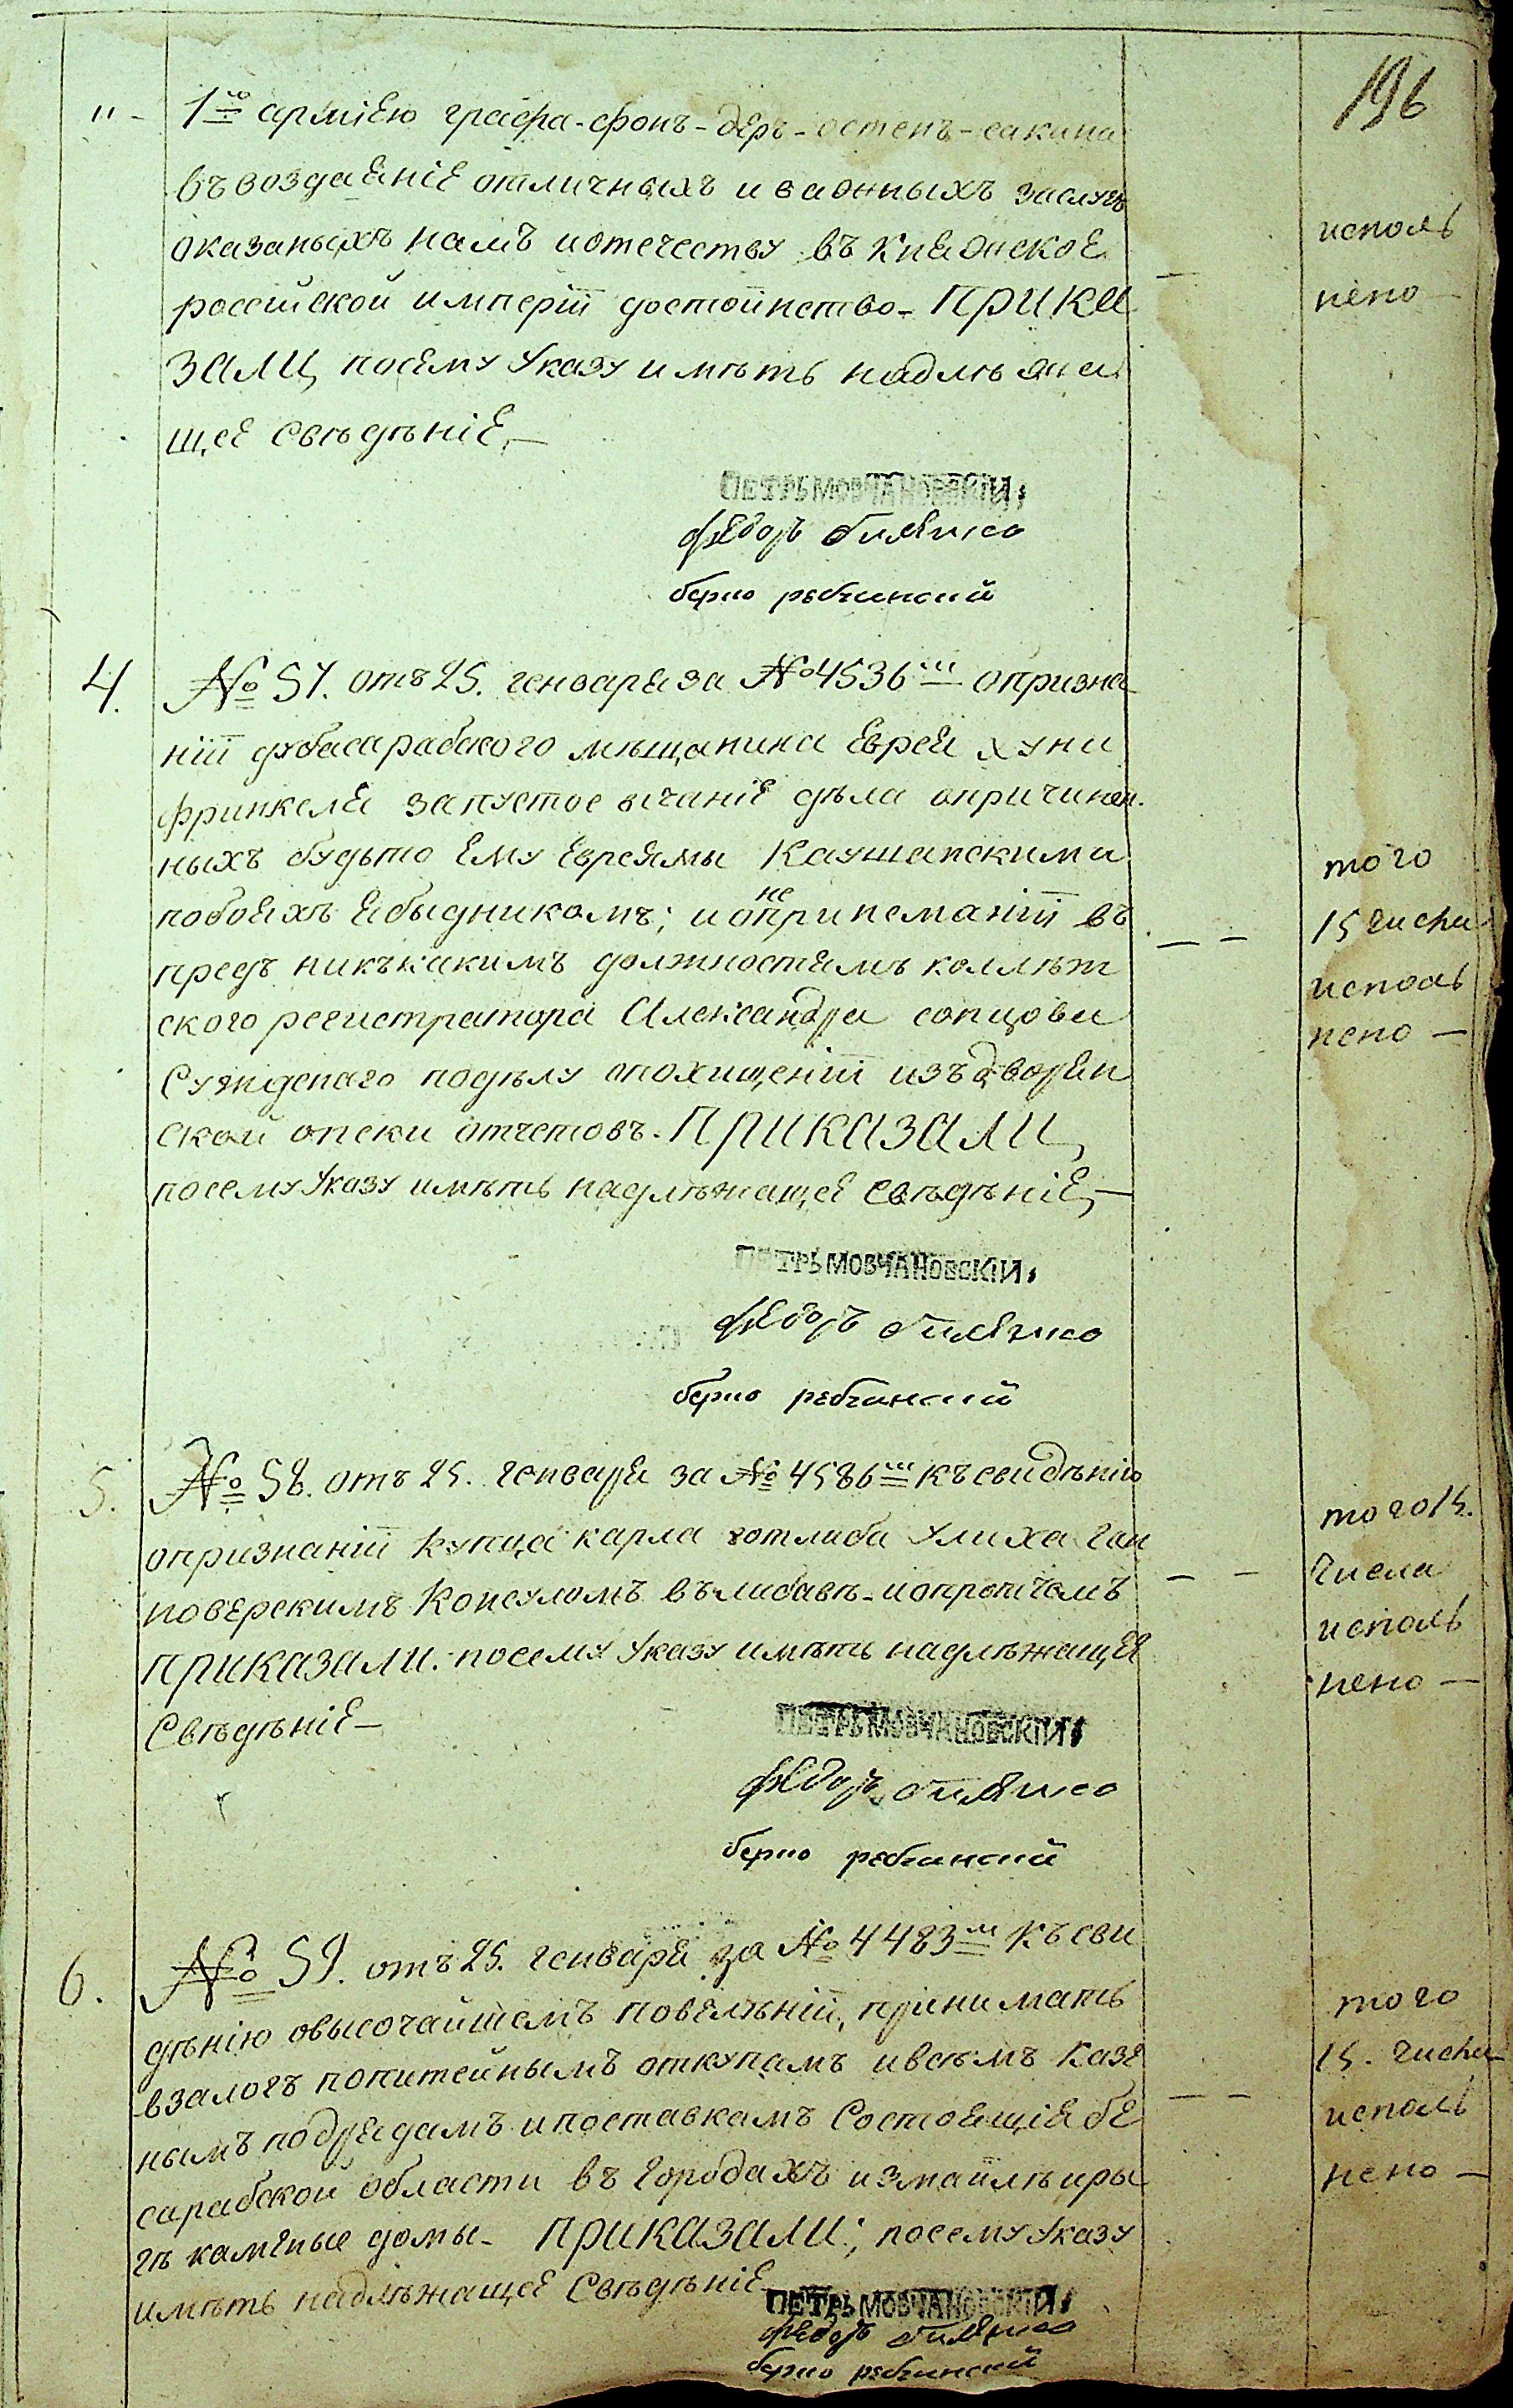 196
1ю армiею графа-фонъ-деръ-остенъ-сакина
въ воздаянiе отличныхъ и важныхъ заслугъ
оказаныхъ намъ иотечеству въ княжеское
россiйской имперiи достоинство- ПРИКА
ЗАЛИ, посему Указу имѣть надлѣжа
щее Свѣдѣнiе,—
исполь
нено —
ПЕТРЪ МОВЧАНОВСКIЙ,
федоръ
берко
4. № 57. отъ 25. генваря за № 4536м опризна
нiи дубасарабского мѣщанина Еврея хуни
франкеля запустое дѣла опричинен.
ныхъ будьто ему Евреями Каушанскими
побояхъ ябыдникомъ; и о не принеманiи въ
предъ никъкакимъ должностямъ коллѣж
ского регистратора Александра сопцова
Сужденаго подѣлу опохищенiи изъ дворян
ской опеки отчетовъ. ПРИКАЗАЛИ,
посему Указу имѣть надлѣжащее Свѣдѣнiе,—
того
15 числа
исполь
нено —
ПЕТРЪ МОВЧАНОВСКIЙ,
федоръ
берко
5. № 58. отъ 25. генваря за № 4586м къ свидѣнiю
опризнанiи Купца карла готлиба Улиха ган
новерскимъ Консуломъ въ либавѣ- и опротчемъ
ПРИКАЗАЛИ. посему Указу имѣть надлѣжащея
Свѣдѣнiе—
того 15.
числа
исполь
нено —
ПЕТРЪ МОВЧАНОВСКIЙ,
федоръ
берко
6. № 59. отъ 25. генваря за № 4483м къ сви
дѣнiю овысочайшемъ повелѣнiи, принимать
взалогъ попитейнымъ откупамъ ивсѣмъ казе
нымъ подрядамъ ипоставкамъ Состоящiя бе
сарабской области въ городахъ измаилѣ иры
гѣ камяные домы- ПРИКАЗАЛИ; посему Указу
имѣть надлѣжащее Свѣдѣнiе
того
15. числа
исполь
нено —
ПЕТРЪ МОВЧАНОВСКIЙ,
федоръ
берко